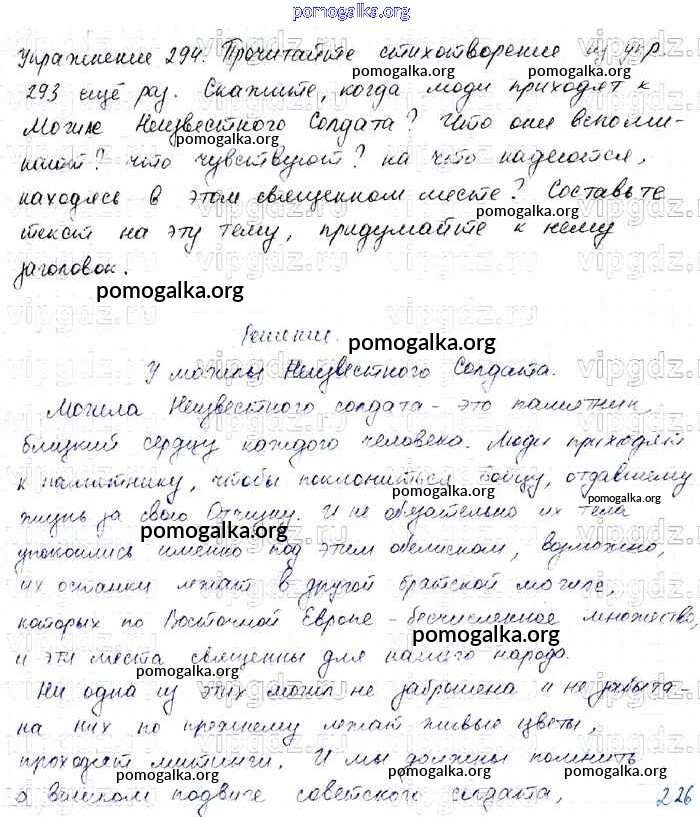 pomogalka.org
Упражнение 294. Прочитайте стихотворение из упр.
pomogalka.org pomogalka.org
293 ещё раз. Скажите, когда люди приходят к
Могиле Неизвестного Солдата? Что они вспоми-
pomogalka.org
нают? что чувствуют? на что надеются,
находясь в этом священном месте? Составьте
pomogalka.org
текст на эту тему, придумайте к нему
заголовок.
pomogalka.org
Решение.
pomogalka.org
У могилы Неизвестного Солдата.
Могила Неизвестного солдата - это памятник,
близкий сердцу каждого человека. Люди приходят
к памятнику, чтобы поклониться бойцу, отдавшему
pomogalka.org pomogalka.org
жизнь за свою Отчизну. И не обязательно их тела
pomogalka.org
упокоились именно под этим обелиском, возможно,
их останки лежат в другой братской могиле,
которых по Восточной Европе - бесчисленное множество,
pomogalka.org
и эти места священны для нашего народа.
pomogalka.org
Ни одна из этих могил не заброшена и не забыта -
на них по прежнему лежат живые цветы,
проходят митинги. И мы должны помнить
pomogalka.org pomogalka.org
о великом подвиге советского солдата,
226
vipgdz.ru